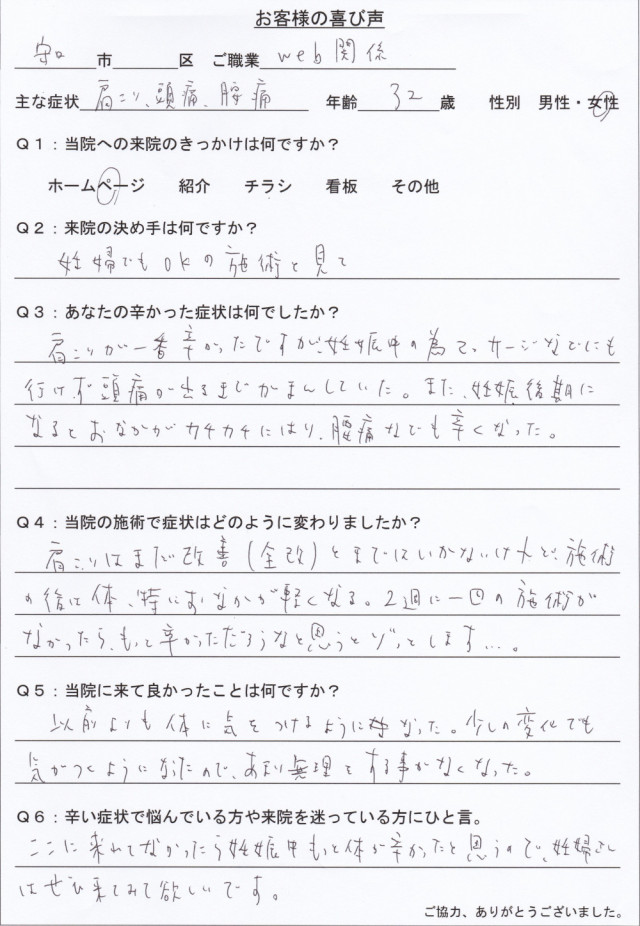 お客様の喜び声
守口市　　　区　ご職業 web関係
主な症状 肩こり、頭痛、腰痛　年齢 32 歳　性別　男性・女性
Q1：当院への来院のきっかけは何ですか？
ホームページ　紹介　チラシ　看板　その他
Q2：来院の決め手は何ですか？
妊婦でもOKの施術と見て
Q3：あなたの辛かった症状は何でしたか？
肩こりが一番辛かったですが、妊娠中の為マッサージなどにも
行けず頭痛が出るまでがまんしていた。また、妊娠後期に
なるとおなかがカチカチにはり、腰痛などでも辛くなった。
Q4：当院の施術で症状はどのように変わりましたか？
肩こりはまだ改善（全改）とまではいかないけれど、施術
の後は体、特におなかが軽くなる。2週に一回の施術が
なかったら、もっと辛かっただろうなと思うとゾッとします…。
Q5：当院に来て良かったことは何ですか？
以前よりも体に気をつけるようになった。少しの変化でも
気がつくようになったので、あまり無理をする事がなくなった。
Q6：辛い症状で悩んでいる方や来院を迷っている方にひと言。
ここに来れてなかったら妊娠中もっと体が辛かったと思うので、妊婦さん
はぜひ来てみて欲しいです。
ご協力、ありがとうございました。